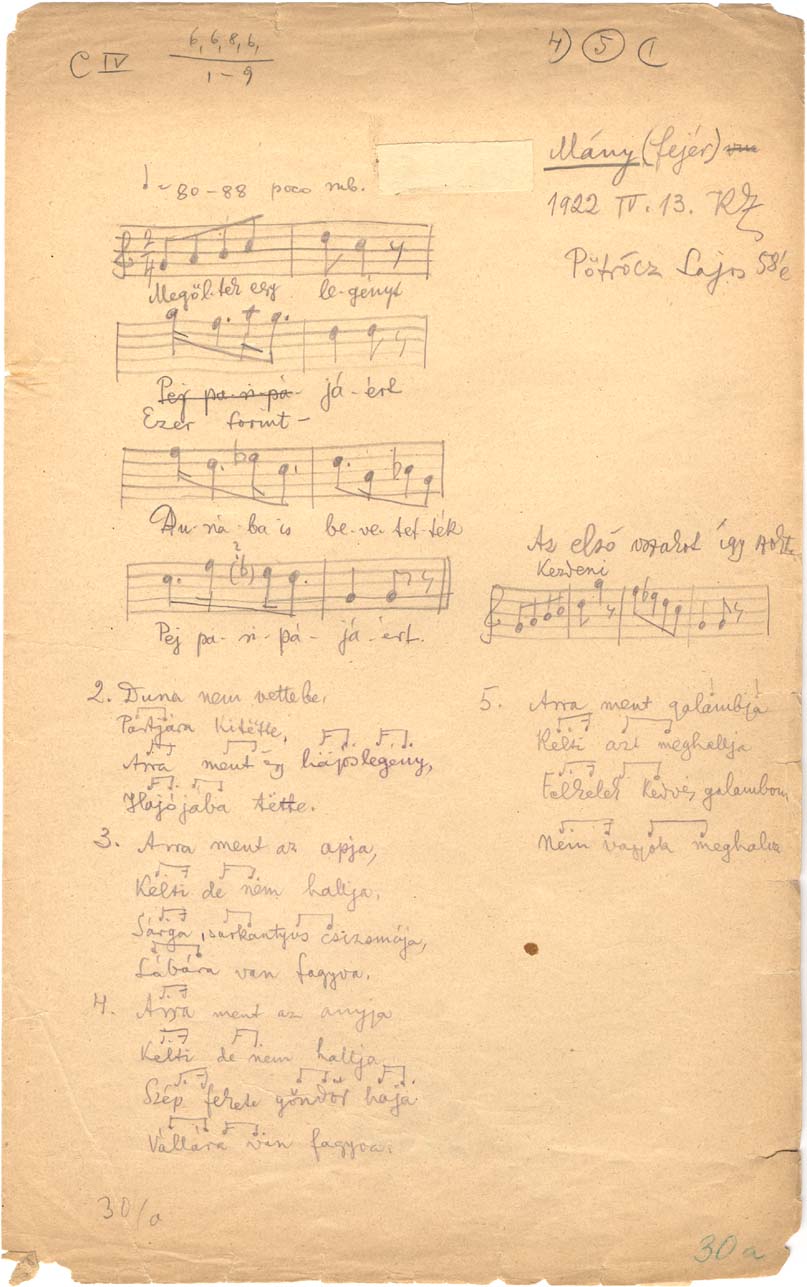 C IV
6, 6, 8, 6,
1-9
4) 5 (1
Mány (fejér)
1922 IV. 13. KZ
Pötröcz Lajos 58 é
♩ ~ 80-88 poco rub.
2/4
Megöl-tek egy le-gényt
Pej pa-ri-pá- já-ért
Ezer forint-
Du-ná-ba is be-ve-tet-ték
Pej pa-ri-pá-já-ért.
Az első
így
Kezdeni
2. Duna nem vette be,
Partjára kitëtte,
Arra ment ëgy hajóslegény,
Hajójába tëtte.
3. Arra ment az apja,
Kelti de nem hallja,
Sárga, sarkantyús csizmája,
Lábára van fagyva.
4. Arra ment az annyja
Kelti de nem hallja,
Szép fekete göndör haja
Vállára van fagyva.
5. Arra ment galambja
Kelti azt meghallja
Felkelek kedves galambom
Nem vagyok meghalva
30/a
30 a